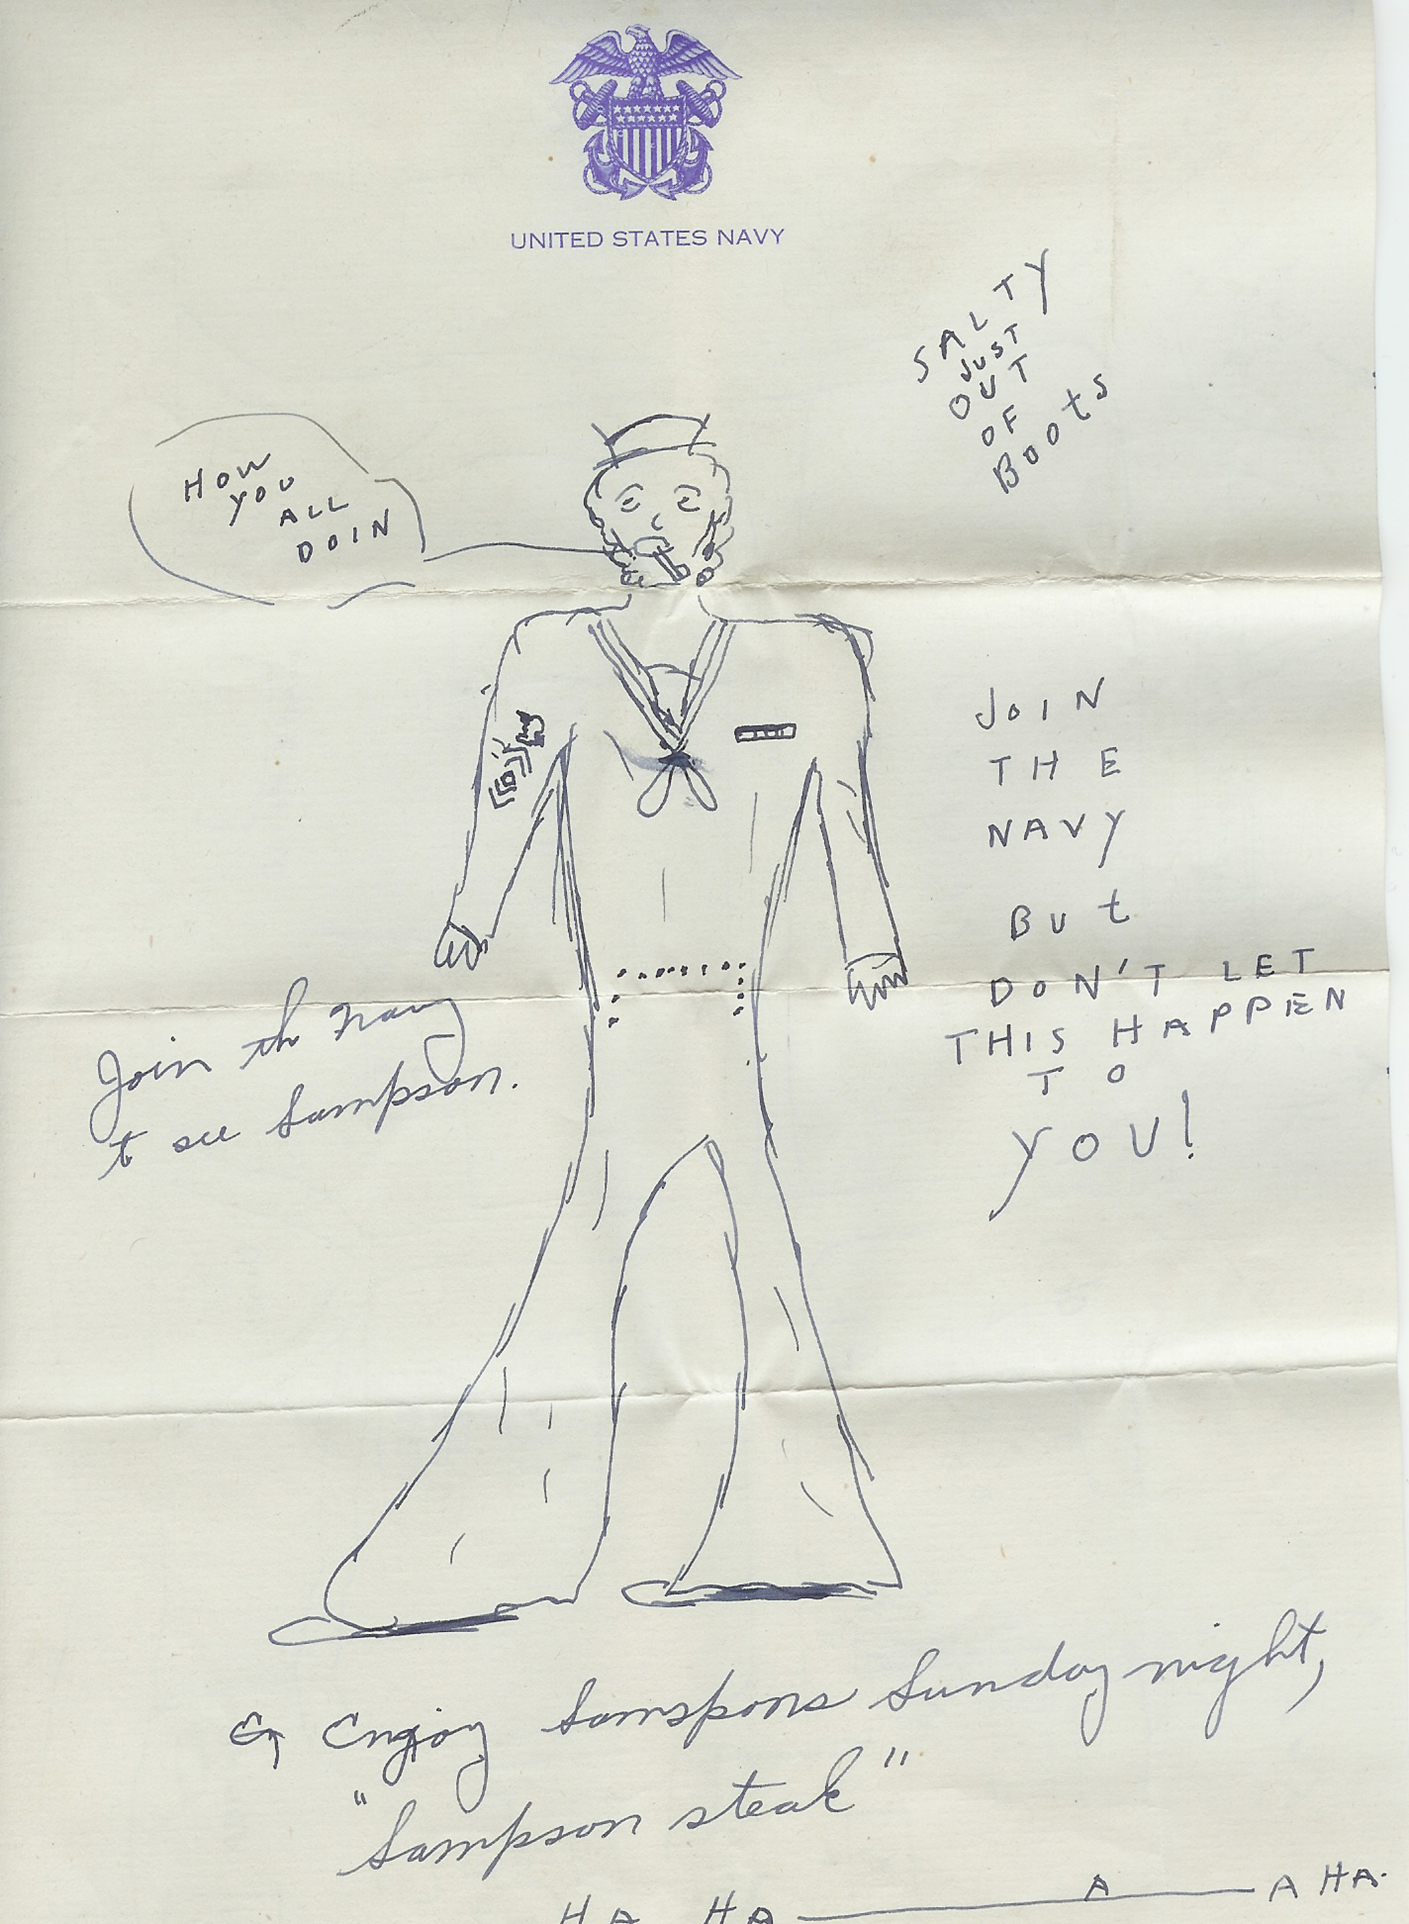 UNITED STATES NAVY
SALTY
JUST
OUT
OF
BOOts
HOW
YOU
ALL
DOIN
JOIN
THE
NAVY
BUt
DON'T LET
THIS HAPPEN
TO
YOU!
Join th Navy
t see Sampson.
Enjoy Samspons Sunday night,
"Sampson steak"
HA HA A A HA.